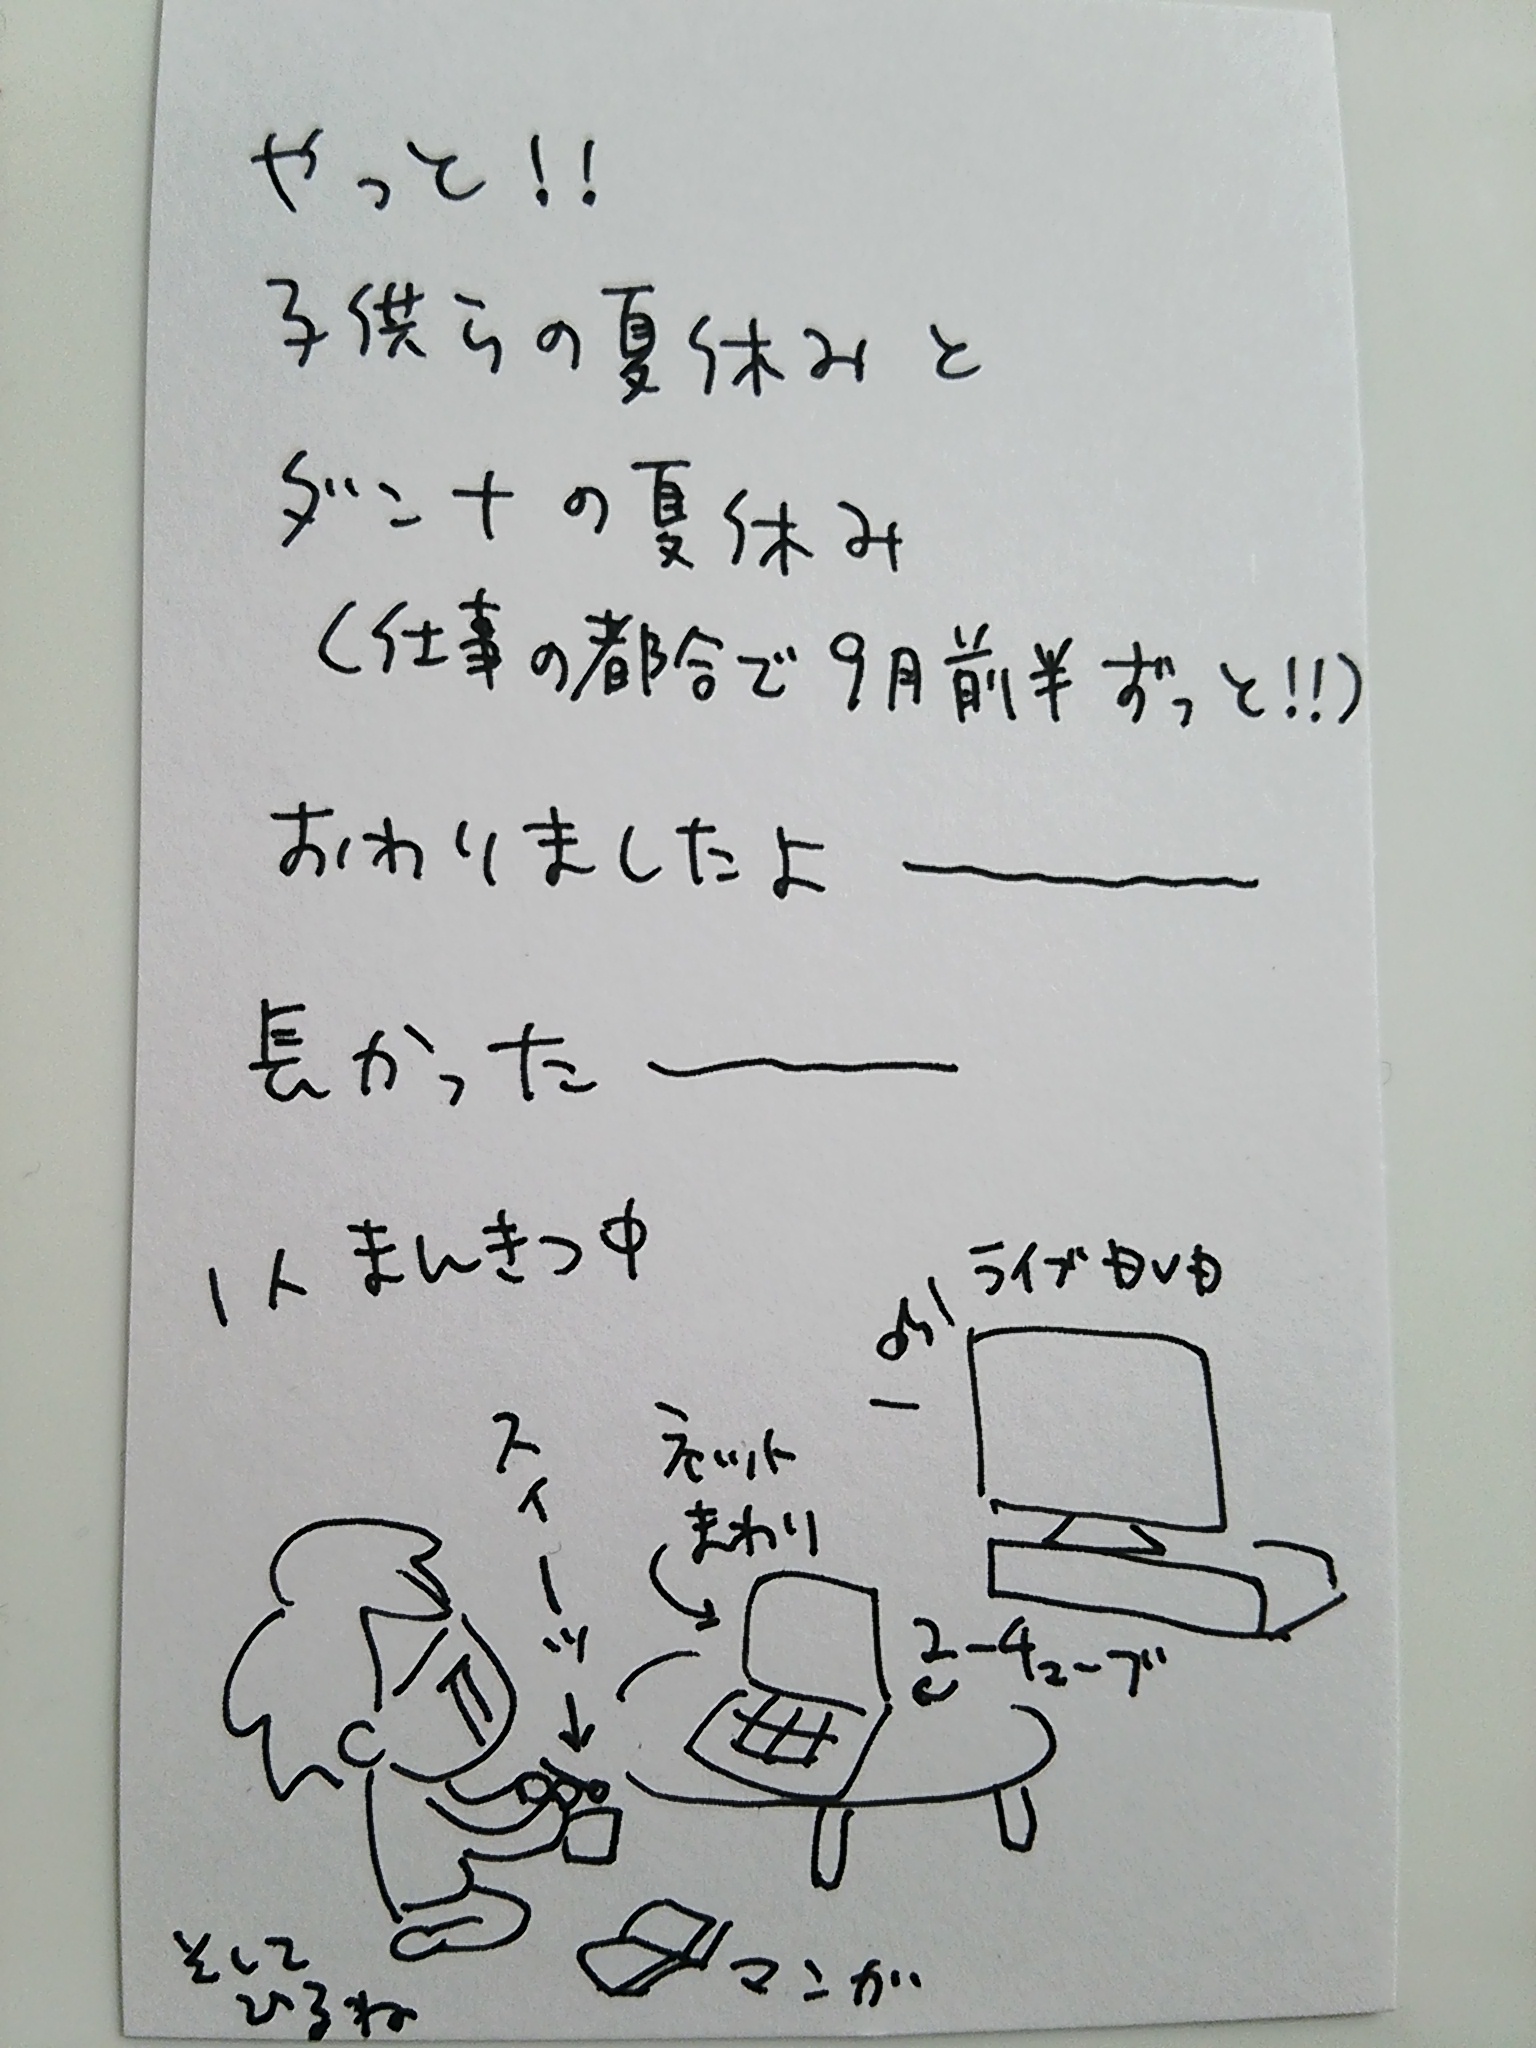 やっと!!
子供らの夏休みと
ダンナの夏休み
(仕事の都合で9月前半ずっと!!)
おわりましたよ――
長かった――
1人まんきつ中
ライブDVD
スイーツ
ネット
まわり
マンガ
そして
ひるね